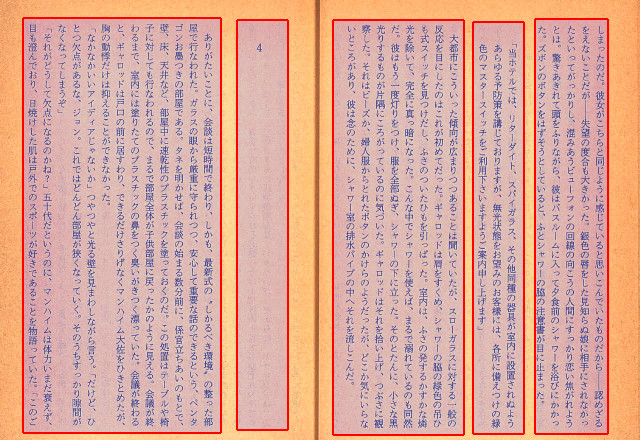 しまったのだ。彼女がこちらと同じように感じていると思いこんでいたものだから――認めざる
をえないことだが――失望の度合も大きかった。銀色の唇をした見知らぬ娘に相手にされなかっ
たといってがっかりし、混みあうビューフォンの回線の向こうの人間にすっかり恋い焦がれよう
とは。驚きあきれて頭をふりながら、彼はバスルームに入って夕食前のシャワーを浴びにかかっ
た。ズボンのボタンをはずそうとしていると、ふとシャワーの脇の注意書が目に止まった。
「当ホテルでは、リターダイト、スパイガラス、その他同種の器具が室内に設置されぬよう
あらゆる予防策を講じておりますが、無光状態をお望みのお客様には、各所に備えつけの緑
色のマスタースイッチをご利用下さいますようご案内申し上げます」
大都市にこういった傾向が広まりつつあることは聞いていたが、スローガラスに対する一般の
反応を目にしたのはこれが初めてだった。ギャロッドは肩をすくめ、シャワーの脇の緑色の吊ひ
も式スイッチを見つけだし、ふさのついたひもを引っぱった。室内は、ふさの発するかすかな燐
光を除いて、完全に真っ暗になった。こんな中でシャワーを使えば、まるで溺れているのも同然
だ。彼はもう一度灯りをつけ、服を全部ぬぎ、シャワーの下に立った。そのとたんに、小さな黒
光りするものが片隅にころがっているのに気づいた。ギャロッドはそれを拾い上げ、つぶさに観
察した。それはビーズか、婦人服からとれたボタンのかけらのようだったが、どこか気にいらな
いところがあり、彼は念のために、シャワー室の排水パイプの中へそれを流しこんだ。
4
ありがたいことに、会談は短時間で終わり、しかも、最新式の〝しかるべき環境〟の整った部
屋で行なわれた。ガラスの眼から厳重に守られつつ、安心して重要な話のできるという、ペンタ
ゴンお墨つきの部屋である。タネを明かせば、会談の始まる数分前に、係官立ちあいのもとで、
壁、床、天井など、部屋中に速乾性のプラスチックを塗っておくのだ。この処置はテーブルや椅
子に対しても行なわれるので、まるで部屋全体が子供部屋に戻ったかのように見える。会議が終
わるまで、室内には塗りたてのプラスチックの鼻をつく臭いがきつく漂っていた。会議が終わる
と、ギャロッドは戸口の前に居すわり、できるだけさりげなくマンハイム大佐をひきとめたが、
胸の動悸だけは抑えることができなかった。
「なかなかいいアイディアじゃないか」つやつやと光る壁を見まわしながら言う。「だけど、ひ
とつ欠点があるな、ジョン。これではどんどん部屋が狭くなっていく。そのうちすっかり隙間が
なくなってしまうぞ」
「それがどうして欠点になるのかね？」五十代だというのに、マンハイムは体力いまだ衰えず、
目も澄んでおり、日焼けした肌は戸外でのスポーツが好きであることを物語っていた。「このご